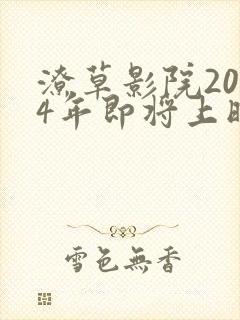 潦草影院20
4年即将上
雪色無香